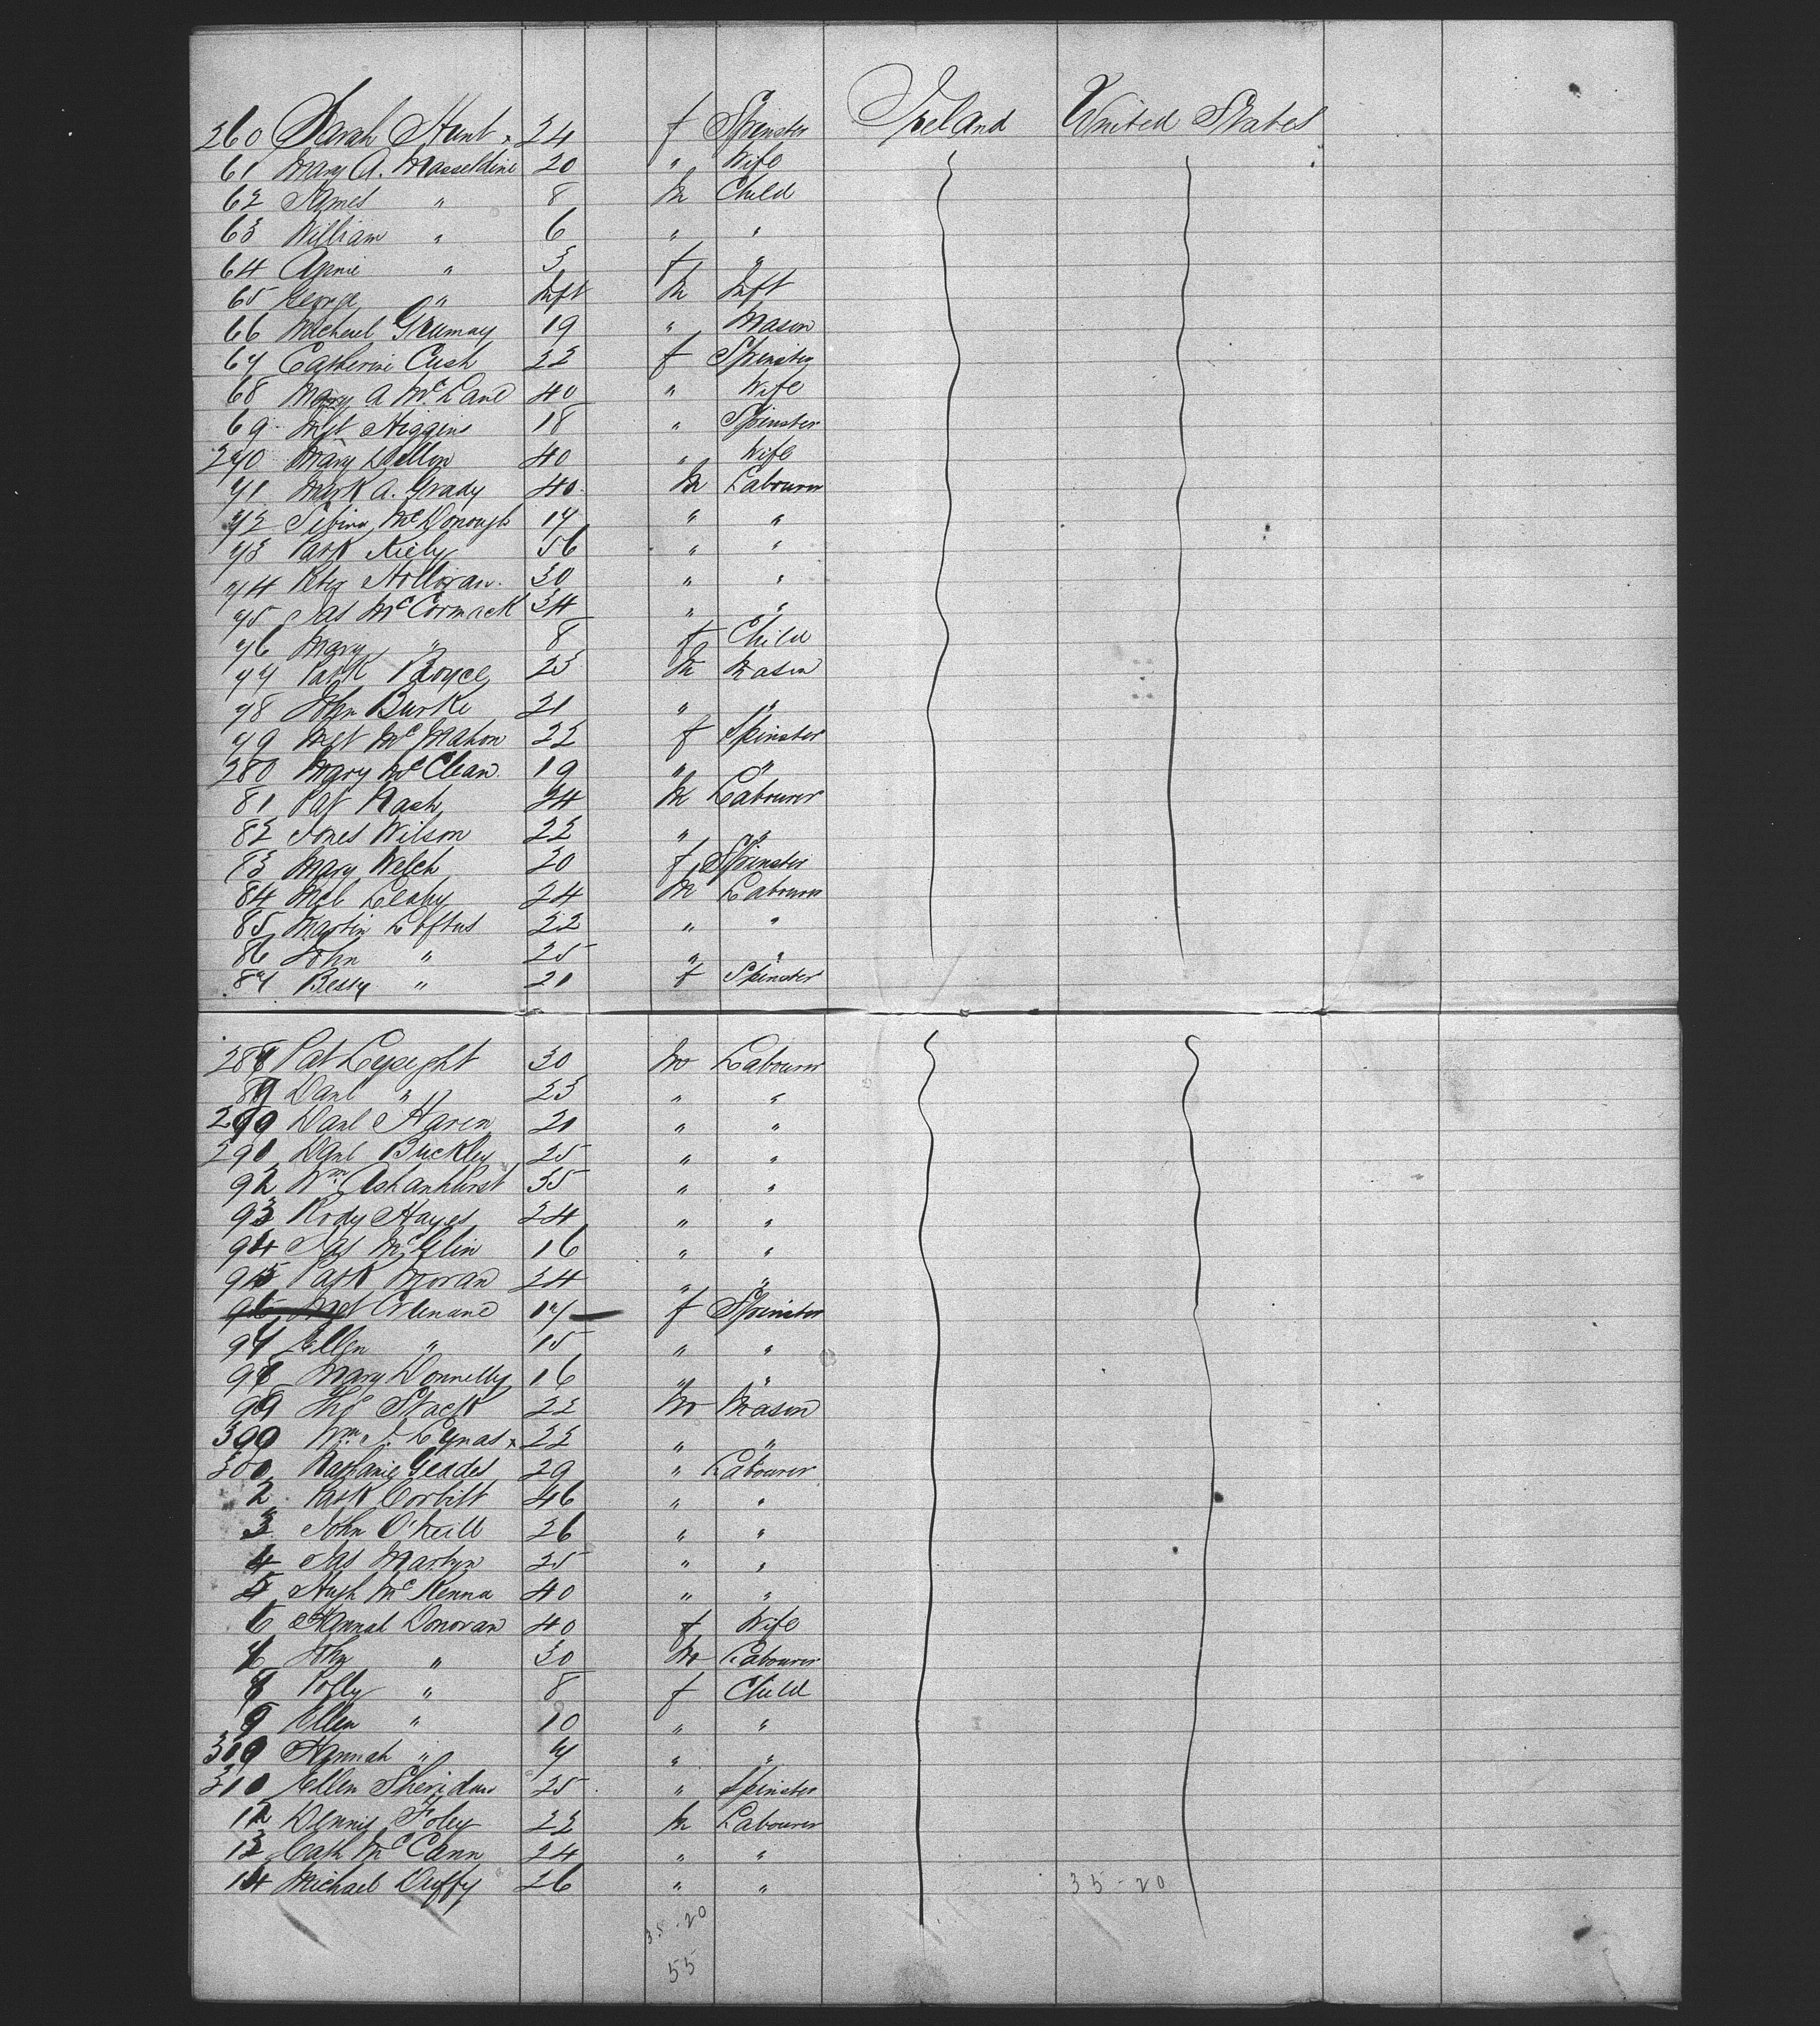 260 Sarah Hunt x 24 f Spinster Ireland United States
61 Mary A. Masseldine 20 " Wife
62 James " 8 M Child
63 William " 6 " "
64 Annie " 3 f "
65 George " Inft M Inft
66 Michael Grumay 19 " Mason
67 Catherine Cush 22 f Spinster
68 Mary A McLane 40 " Wife
69 Mgt Higgens 18 " Spinster
270 Mary Dillon 40 " Wife
71 Mark A. Grady 40 M Labourer
72 McDonough 17 " "
73 Patk Kiely 56 " "
74 Peter Holloran 30 " "
75 Jas McCormack 34 " "
76 Mary " 8 f Child
77 Patk Royce 23 M Mason
78 John Burke 21 " "
79 Mgt McMahon 22 f Spinster
280 Mary McClean 19 " "
81 Pat Nash 24 M Labourer
82 Jones Wilson 22 " "
83 Mary Welch 20 f Spinster
84 Mcl Leahy 24 M Labourer
85 Martin Loftus 22 " "
86 John " 25 " "
87 Bessy " 20 f Spinster
288 Pat 30 M Labourer
89 Danl " 23 " "
290 Danl Haren 20 " "
291 Danl Buckley 25 " "
92 Wm Ashanhurst 35 " "
93 Rody Hayes 24 " "
94 Jas McGlin 16 " "
95 Patk Moran 24 " "
96 Mgt Crenane 17 f Spinster
97 Ellen " 15 " "
98 Mary Donnelly 16 " "
99 Thos Stack 22 M Mason
300 Wm J. Lynas x 22 " "
300 Geades 29 " Labourer
2 Patk Corbitt 46 " "
3 John O'Neill 26 " "
4 Jas Martyn 25 " "
5 Hugh McKenna 40 " "
6 Hannah Donovan 40 f Wife
7 John " 30 M Labourer
8 Polly " 8 f Child
9 Ellen " 10 " "
310 Hannah " 7 " "
310 Ellen Sheridan 25 " Spinster
12 Dennis Foley 22 M Labourer
13 Cath McCann 24 " "
14 Michael Duffy 26 " " 35-20
35-20
55